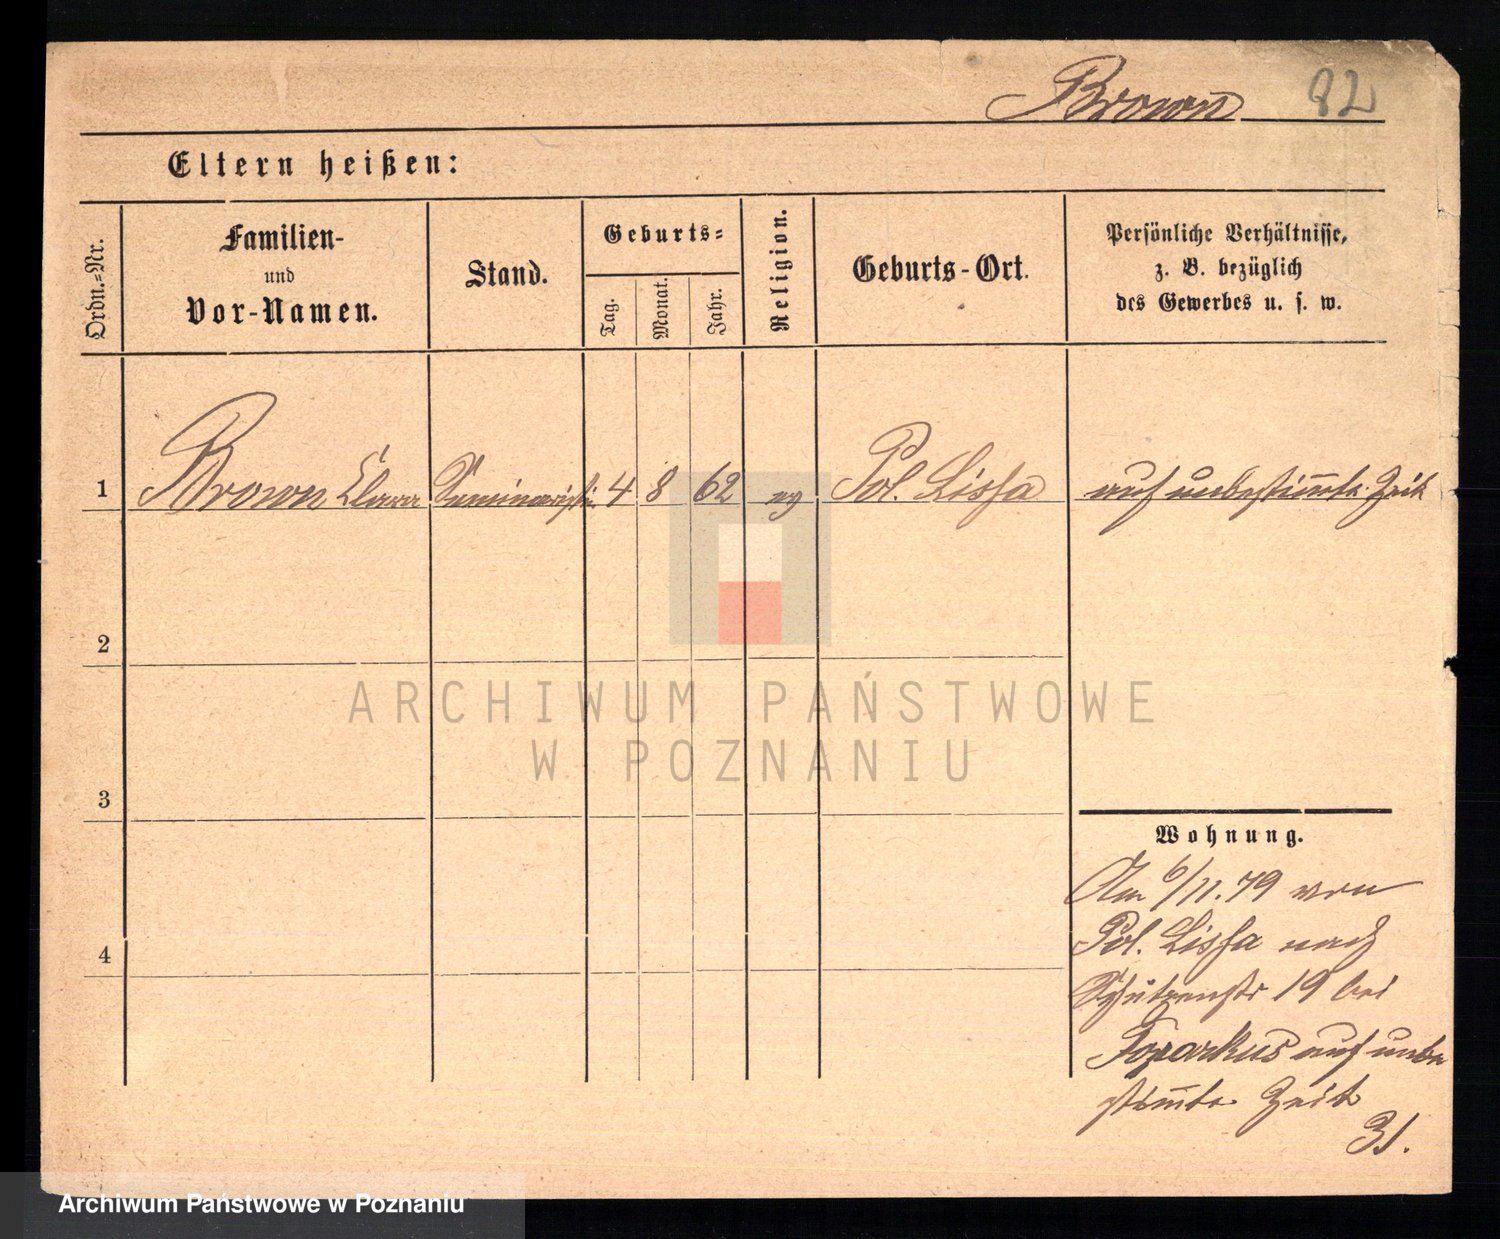 Brown 82
Eltern heißen:
Ordn.-Nr.
Familien-
und
Vor-Namen.
Stand.
Geburts-
Tag.
Monat.
Jahr.
Religion.
Geburts-Ort.
Persönliche Verhältnisse,
z. B. bezüglich
des Gewerbes u. s. w.
1 Brown Clara Seminaristin 4 8 62 ev Pol. Lissa auf unbestimmte Zeit
2
3
4
Wohnung.
Am 6/11.79 von
Pol. Lissa nach
Schützenstr 19 bei
auf unbe
stimmte Zeit
31.
ARCHIWUM PAŃSTWOWE
W POZNANIU
Archiwum Państwowe w Poznaniu